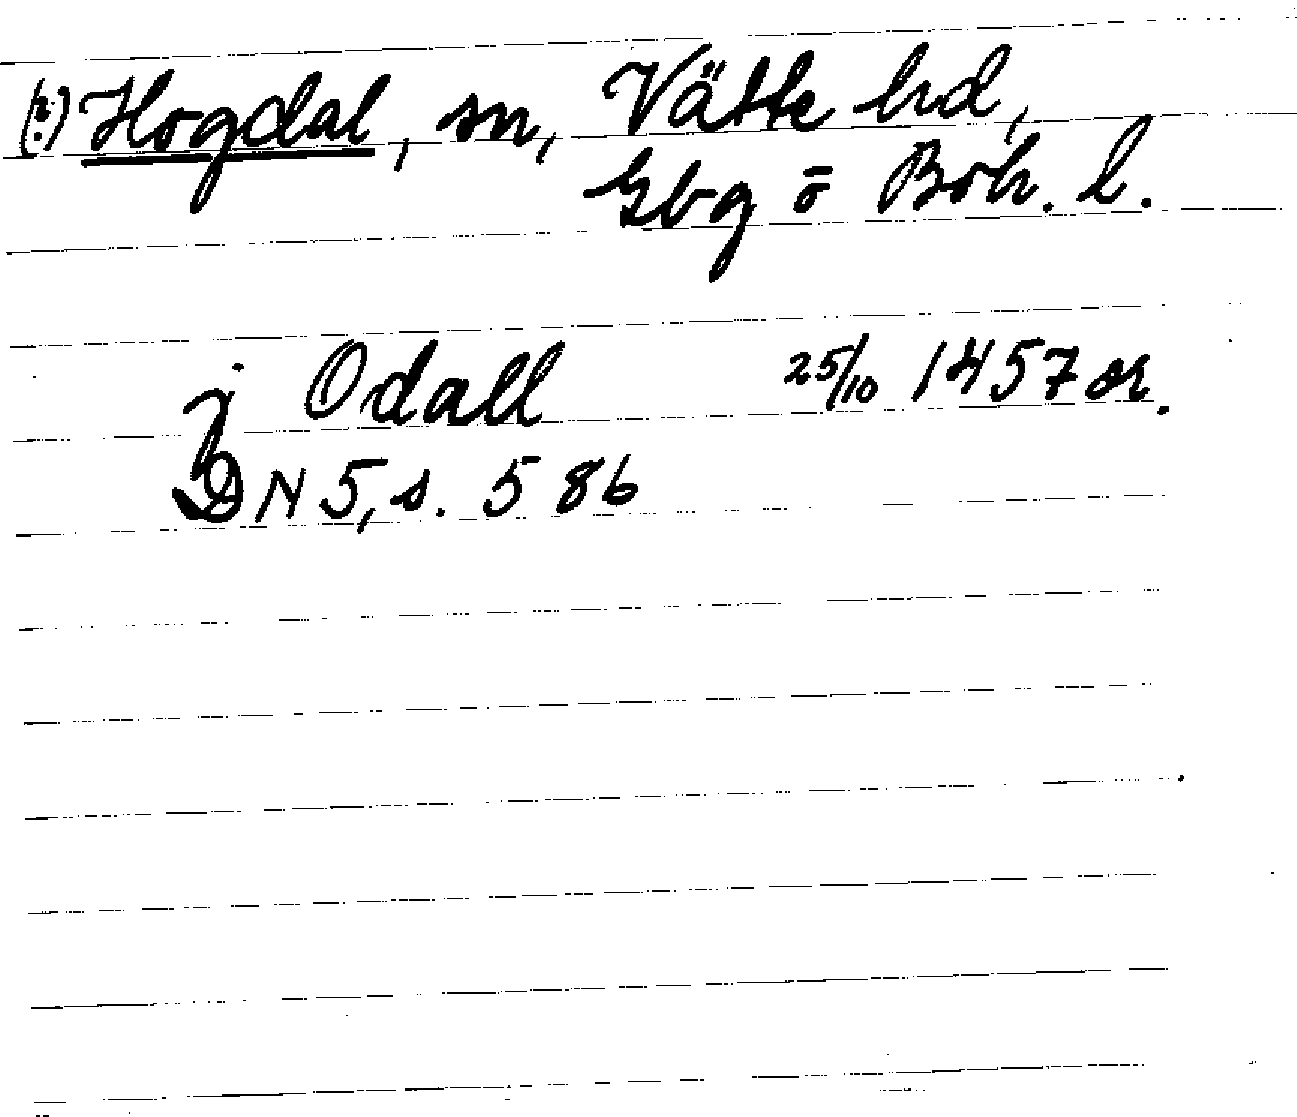 (:) Hogdal, sn, Vätte hd,
Gbg ō Boh. l.
j Odall 25/10 1457 or.
DN 5, s. 586